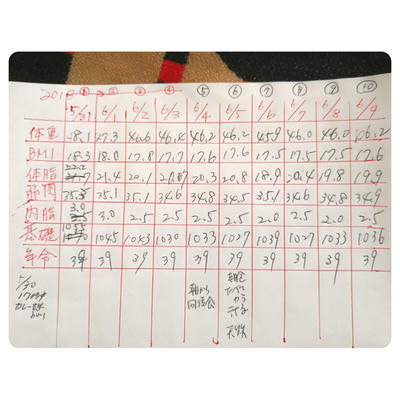 ① ② ③ ④ ⑤ ⑥ ⑦ ⑧ ⑨ ⑩
5/31 6/1 6/2 6/3 6/4 6/5 6/6 6/7 6/8 6/9
体重 48.1 47.3 46.6 46.4 46.2 46.2 45.9 46.0 46.0 46.2
BMI 18.3 18.0 17.8 17.7 17.6 17.6 17.5 17.5 17.5 17.6
体脂 21.4 20.1 20.3 20.8 18.9 20.4 19.8 19.9
筋肉 35.1 35.1 34.6 34.8 34.5 35.1 34.6 34.8 34.9
内脂 3.0 3.0 2.5 2.5 2.5 2.5 2.0 2.0 2.0 2.5
基礎 1045 1043 1030 1033 1027 1039 1027 1033 1036
年令 39 39 39 39 39 39 39 39 39 39
5/30
カレー